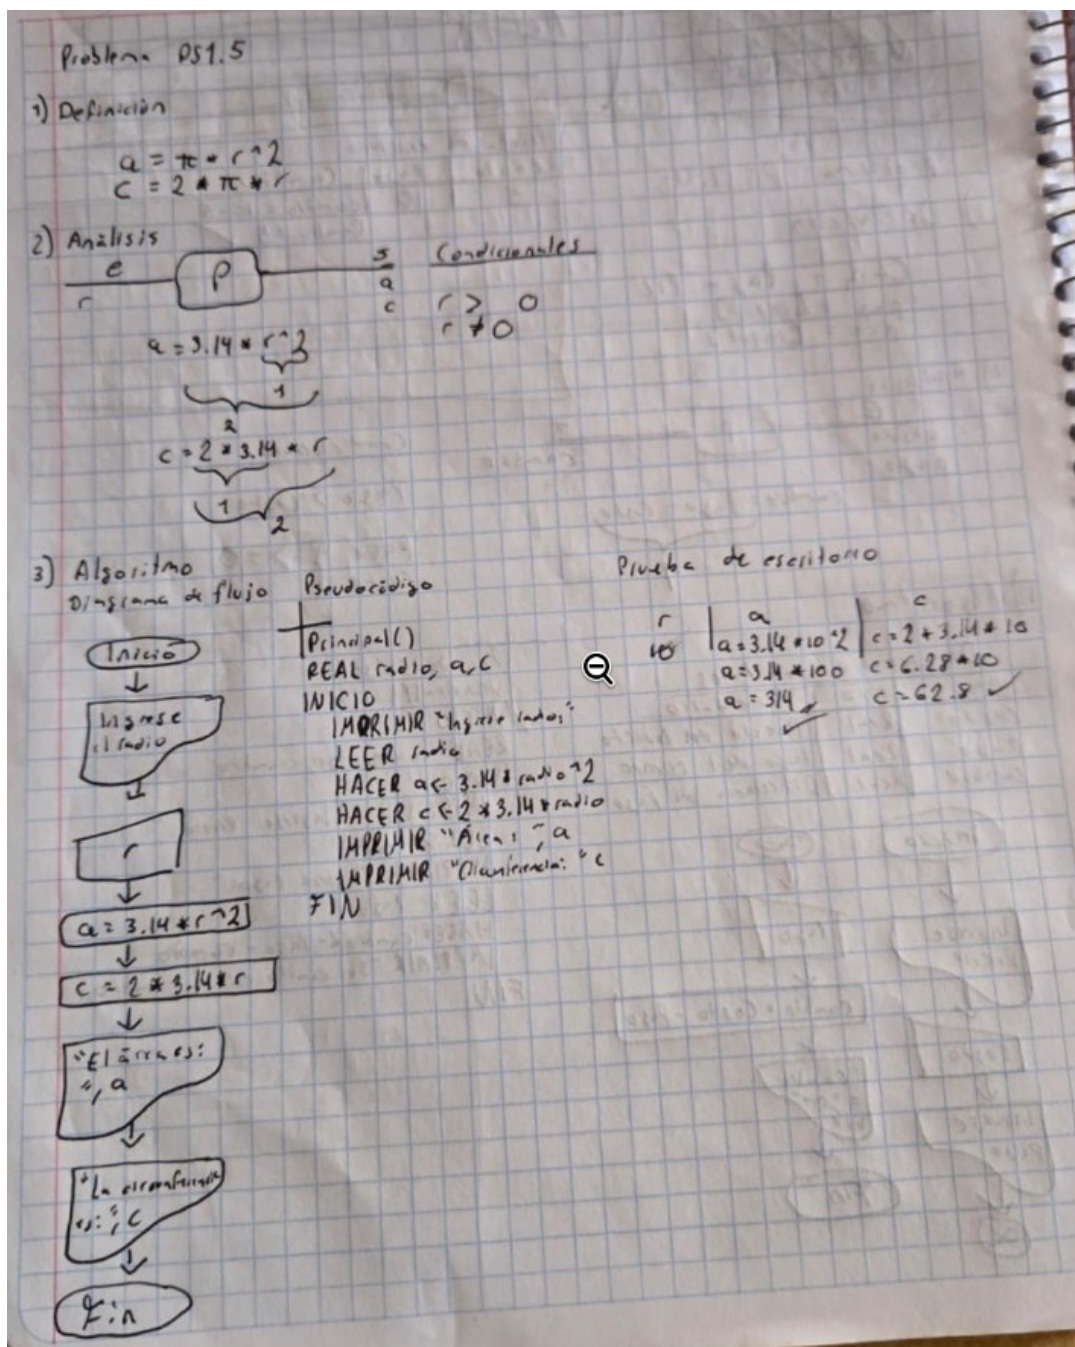 Problema PS1.5
1) Definición
a = π * r^2
c = 2 * π * r
2) Análisis
e
P
s
r
a
c
Condicionales
r > 0
r ≠ 0
a = 3.14 * r^2
1
2
c = 2 * 3.14 * r
1
2
3) Algoritmo
Diagrama de flujo
Inicio
Ingrese
el radio
r
a = 3.14 * r^2
c = 2 * 3.14 * r
"El área es:
", a
"La circunferencia
es: ", c
Fin
Pseudocódigo
Principal()
REAL radio, a, c
INICIO
IMPRIMIR "Ingrese radio:"
LEER radio
HACER a <- 3.14 * radio^2
HACER c <- 2 * 3.14 * radio
IMPRIMIR "Área: ", a
IMPRIMIR "Circunferencia: " c
FIN
Prueba de escritorio
r | a | c
10 | a = 3.14 * 10^2 | c = 2 * 3.14 * 10
a = 3.14 * 100 c = 6.28 * 10
a = 314 c = 62.8